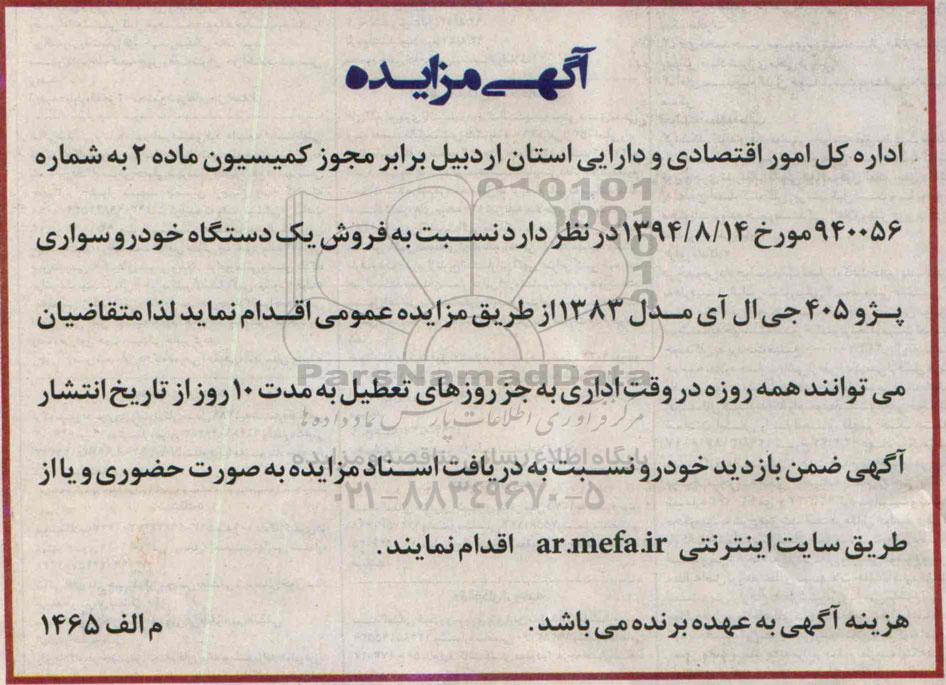 آگهی مزایده
اداره کل امور اقتصادی و دارایی استان اردبیل برابر مجوز کمیسیون ماده ۲ به شماره
۹۴۰۰۵۶ مورخ ۱۳۹۴/۸/۱۴ در نظر دارد نسبت به فروش یک دستگاه خودرو سواری
پژو ۴۰۵ جی ال آی مدل ۱۳۸۳ از طریق مزایده عمومی اقدام نماید لذا متقاضیان
ParsNamadData
می توانند همه روزه در وقت اداری به جز روزهای تعطیل به مدت ۱۰ روز از تاریخ انتشار
مرکز فرآوری اطلاعات پارس نماد داده ها
پایگاه اطلاع رسانی مناقصه و مزایده
آگهی ضمن بازدید خودرو نسبت به دریافت اسناد مزایده به صورت حضوری و یا از
۰۲۱-۸۸۳۴۹۶۷۰-۵
طریق سایت اینترنتی ar.mefa.ir اقدام نمایند.
هزینه آگهی به عهده برنده می باشد. م الف ۱۴۶۵